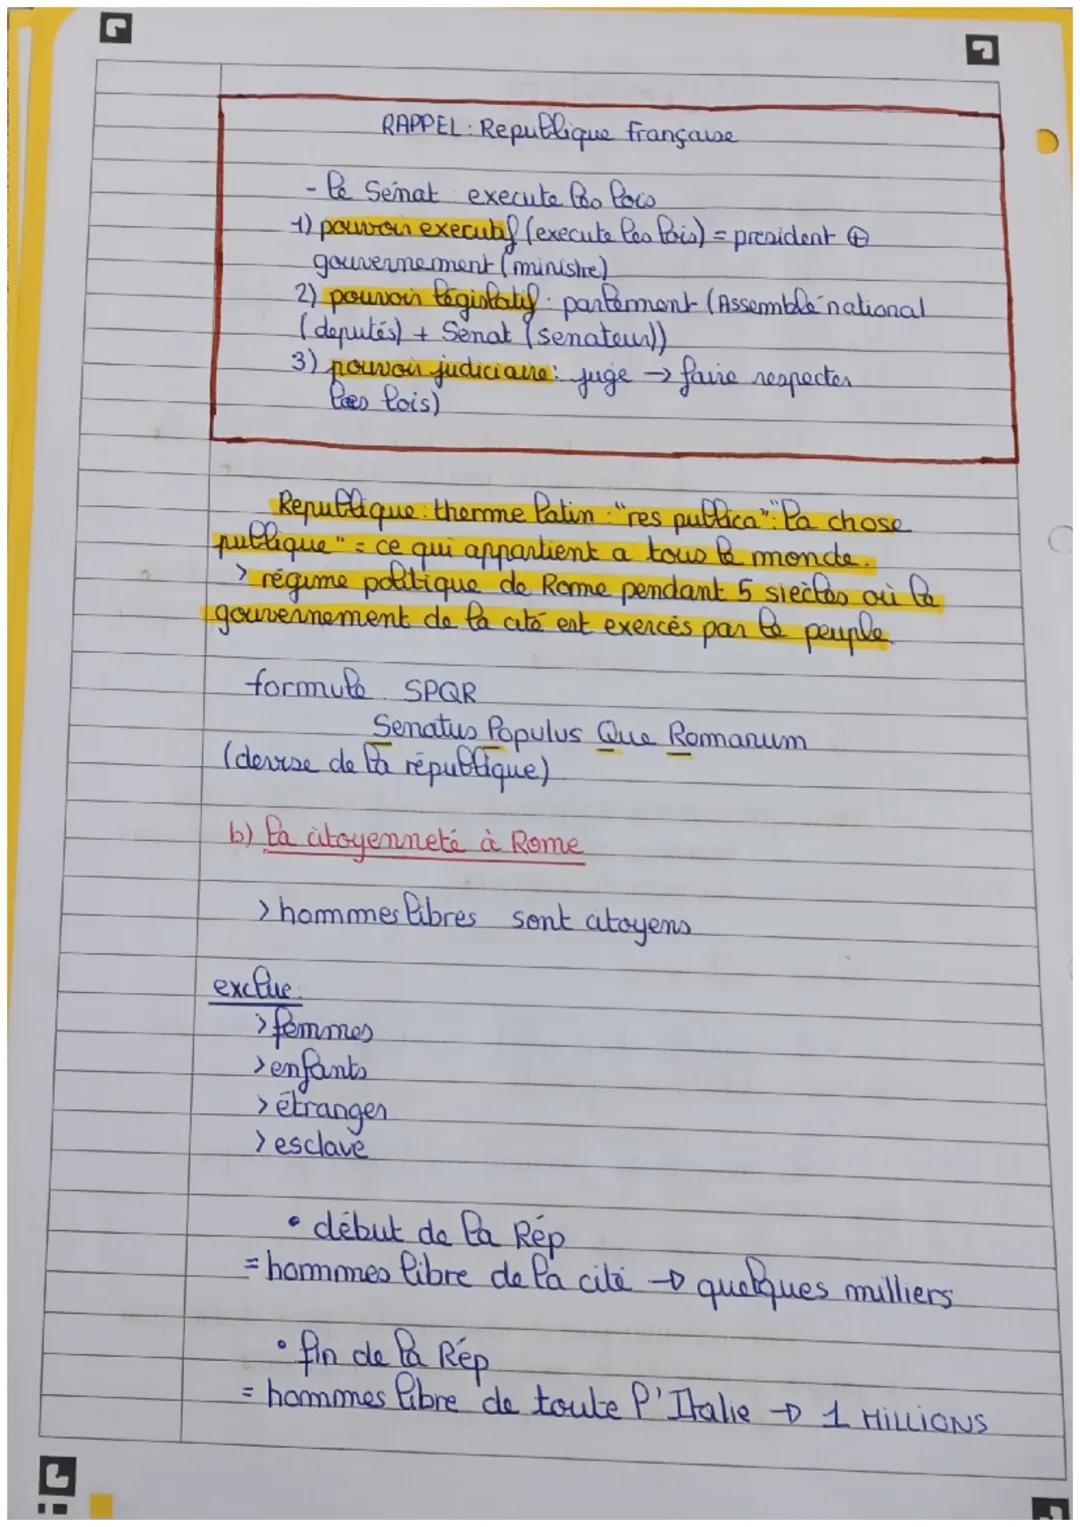 RAPPEL : Republique française
- le Sénat execute les lois
1) pouvoir executif (execute les lois) = president ⊕
gouvernement (ministre)
2) pouvoir législatif : parlement (Assemblé national
(deputés) + Senat (senateur))
3) pouvoir judiciaire : juge → faire respecter
les lois)
Republique : therme latin : "res publica" : "la chose
publique" = ce qui appartient a tous le monde.
> régime politique de Rome pendant 5 siecles où le
gouvernement de la cité est exercés par le peuple.
formule SPQR
Senatus Populus Que Romanum
(devise de la république)
b) La citoyenneté à Rome
> hommes libres sont citoyens
exclue :
> femmes
> enfants
> étranger
> esclave
• début de la Rép
= hommes libre de la cité → quelques milliers
• fin de la Rép
= hommes libre de toute l'Italie → 1 MILLIONS